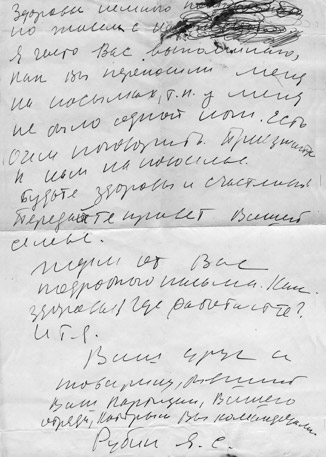 Здоровья немного
по жизни с н
Я часто Вас вспоминаю,
как Вы переносили меня
на носилках, т.к. у меня
не было одной ноги. Есть
о чем поговорить. Приезжайте
к нам на
Будьте здоровы и счастливы
Передайте привет Вашей
семье.
Ждем от Вас
подробного письма. Как
здоровье? Где работаете?
и т.д.
Ваш друг и
товарищ, бывший
Ваш партизан, Вашего
отряда, который Вы командовали
Рубин Я. С.